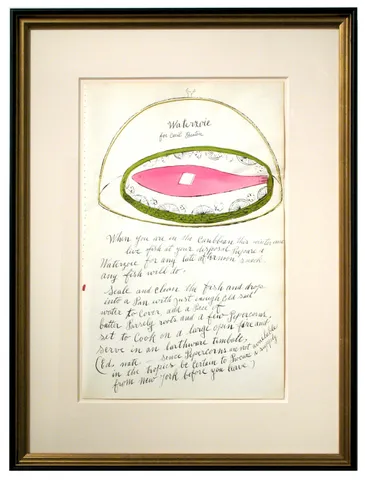 Waterzoie
for
When you are in the Caribbean this winter and
live fish at your disposal prepare a
Waterzoie for any late afternoon snack
any fish will do.
Scale and clean the fish and drop
into a Pan with just enough Cold salt
water to Cover, add a Piece of
butter Parsely roots and a few Peppercorns,
set to Cook on a large open fire and
serve in an Earthware timbale,
(Ed. note - since Peppercorns are not available
in the tropics be Certain to Procure a supply
from New York before you leave)